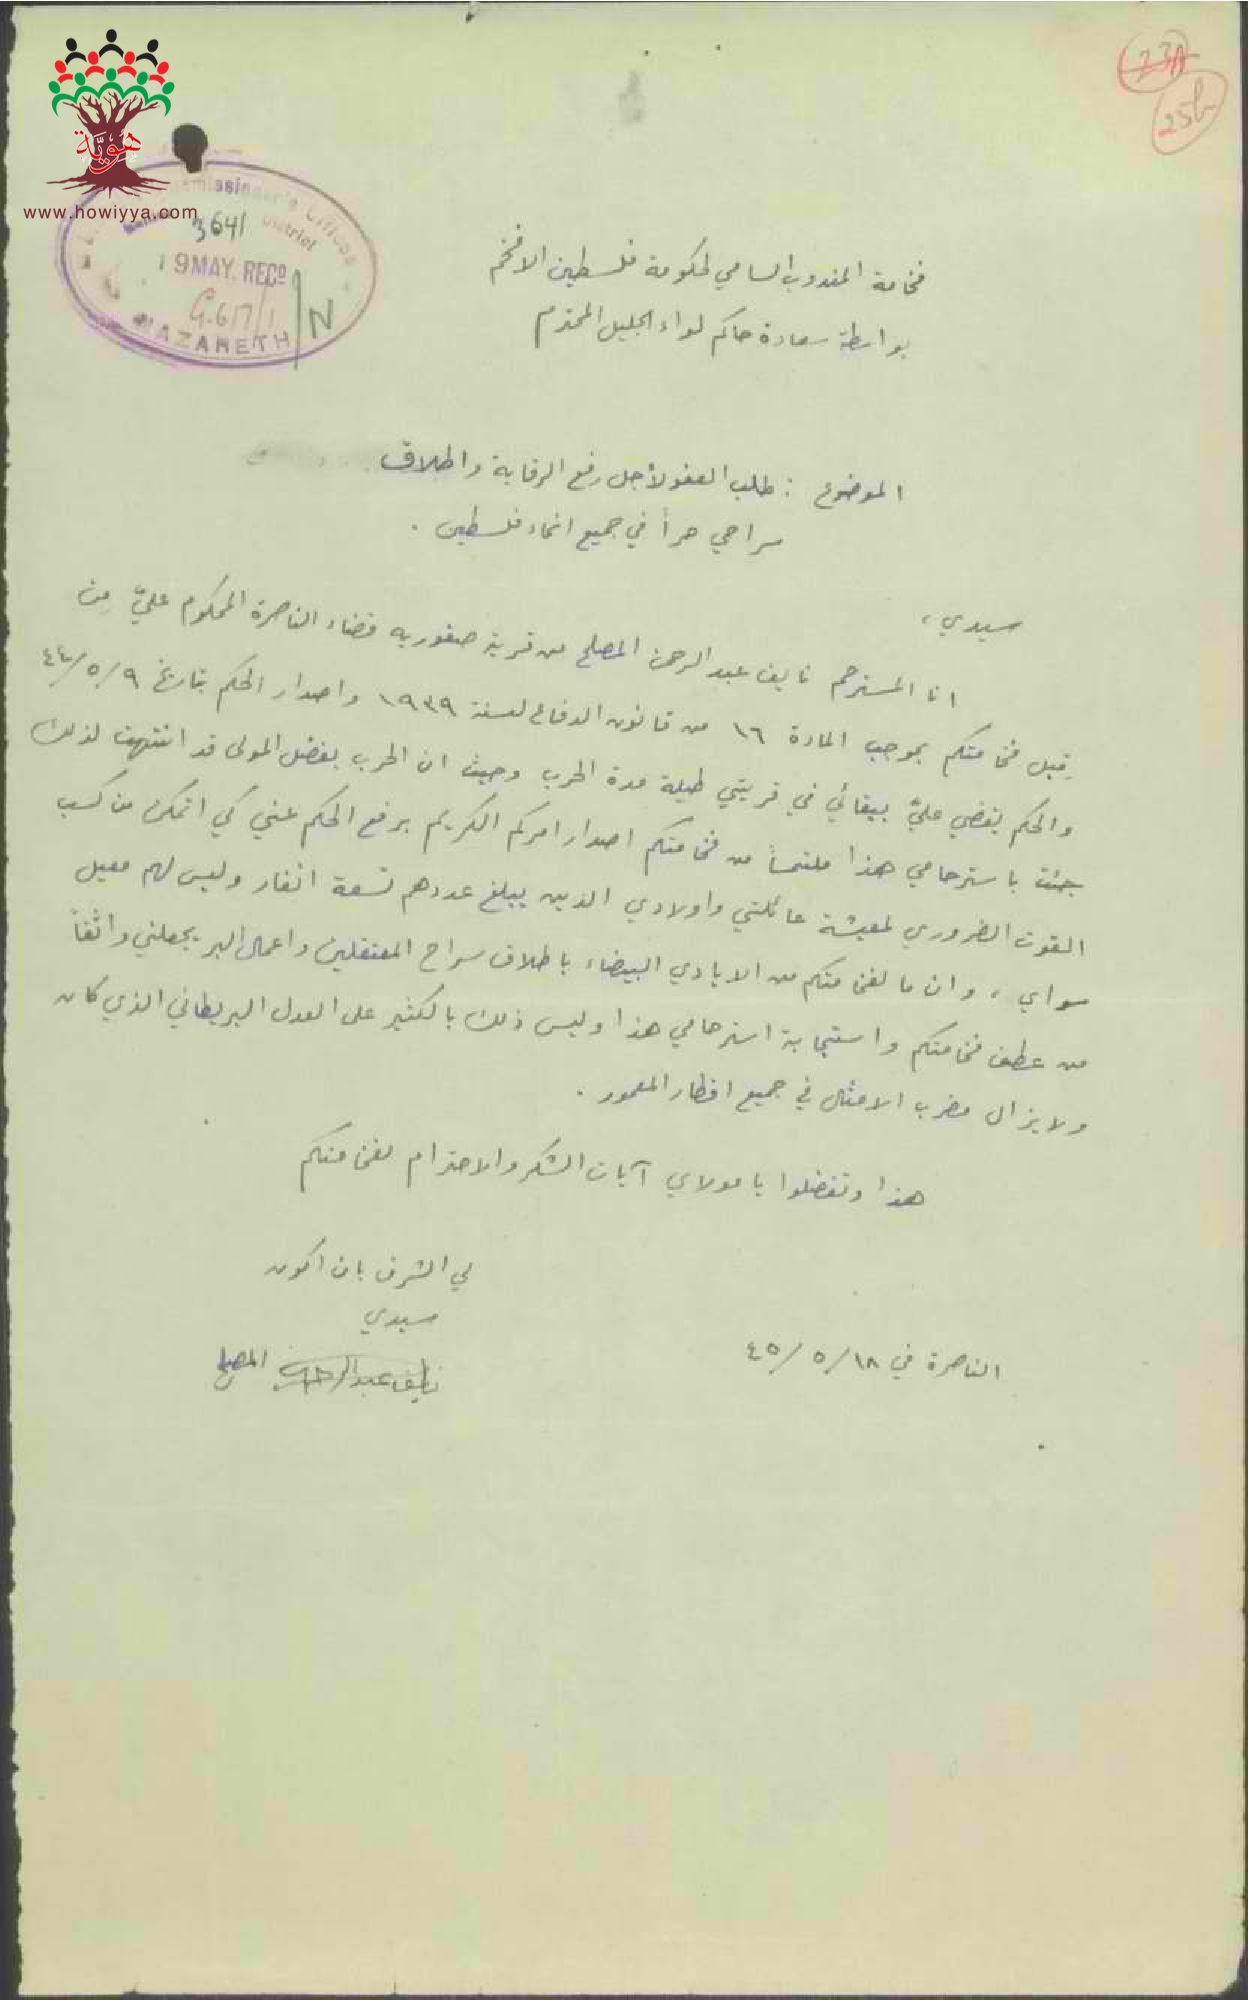 23A
25b
هوية
www.howiyya.com
District
3641
19 MAY. RECD
G.617/1/N
NAZARETH
فخامة المندوب السامي لحكومة فلسطين الافخم
بواسطة سعادة حاكم لواء الجليل المحترم
الموضوع : طلب العفو لأجل رفع الرقابة واطلاق
سراحي حراً في جميع انحاء فلسطين .
سيدي ،
انا المسترحم نايف عبد الرحمن المصلح من قرية صفوريه قضاء الناصرة المحكوم عليّ مِن
قِبل فخامتكم بموجب المادة ١٦ من قانون الدفاع لسنة ١٩٣٩ واصدار الحكم بتاريخ ٩/٥/٤٤
والحكم يقضي عليّ ببقائي في قريتي طيلة مدة الحرب وحيث ان الحرب بفضل المولى قد انتهت لذلك
جئت باسترحامي هذا ملتمساً من فخامتكم اصدار امركم الكريم برفع الحكم عني كي اتمكن من كسب
القوت الضروري لمعيشة عائلتي واولادي الذين يبلغ عددهم تسعة انفار وليس لهم معيل
سواي ، وان ما لفخامتكم من الايادي البيضاء باطلاق سراح المعتقلين واعمال البر يجعلني واثقاً
من عطف فخامتكم واستجابة استرحامي هذا وليس ذلك بالكثير على العدل البريطاني الذي كان
ولا يزال مضرب الامثال في جميع اقطار المعمور .
هذا وتفضلوا يا مولاي آيات الشكر والاحترام لفخامتكم
لي الشرف بان اكون
سيدي
الناصرة في ١٨/٥/٤٥
نايف عبد الرحمن المصلح